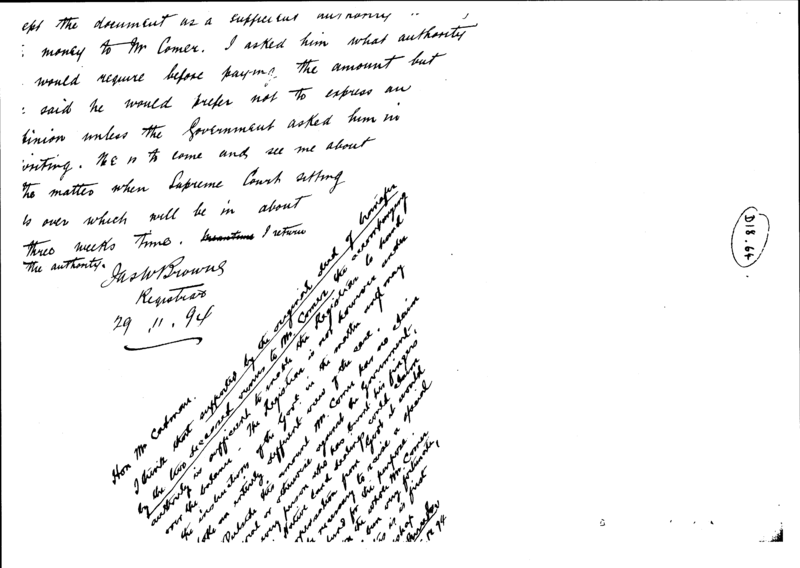 ept the document as a sufficient authority
money to Mr Comer. I asked him what authority
would require before paying the amount but
said he would prefer not to express an
pinion unless the Government asked him in
writing. He is to come and see me about
the matter when Supreme Court sitting
is over which will be in about
three weeks time. I return
the authority.
Jas W Browne
Registrar
29 . 11 . 94
Hon Mr Cadman.
I think that supported by the original deed of transfer
by the two deceased owners to Mr. Comer the accompanying
authority is sufficient to enable the Registrar to hand
over the balance. The Registrar is not however under
the instructions of the Govt. in the matter and may
take an entirely different view of the case.
Outside this amount Mr. Comer has no claim
or otherwise against the Government.
every person who has burnt his fingers
Native land dealings could claim
from Govt it would
be necessary to raise a special
for the purpose.
the whole Mr. Comer
been very fortunate,
is first
12.94
D18.64